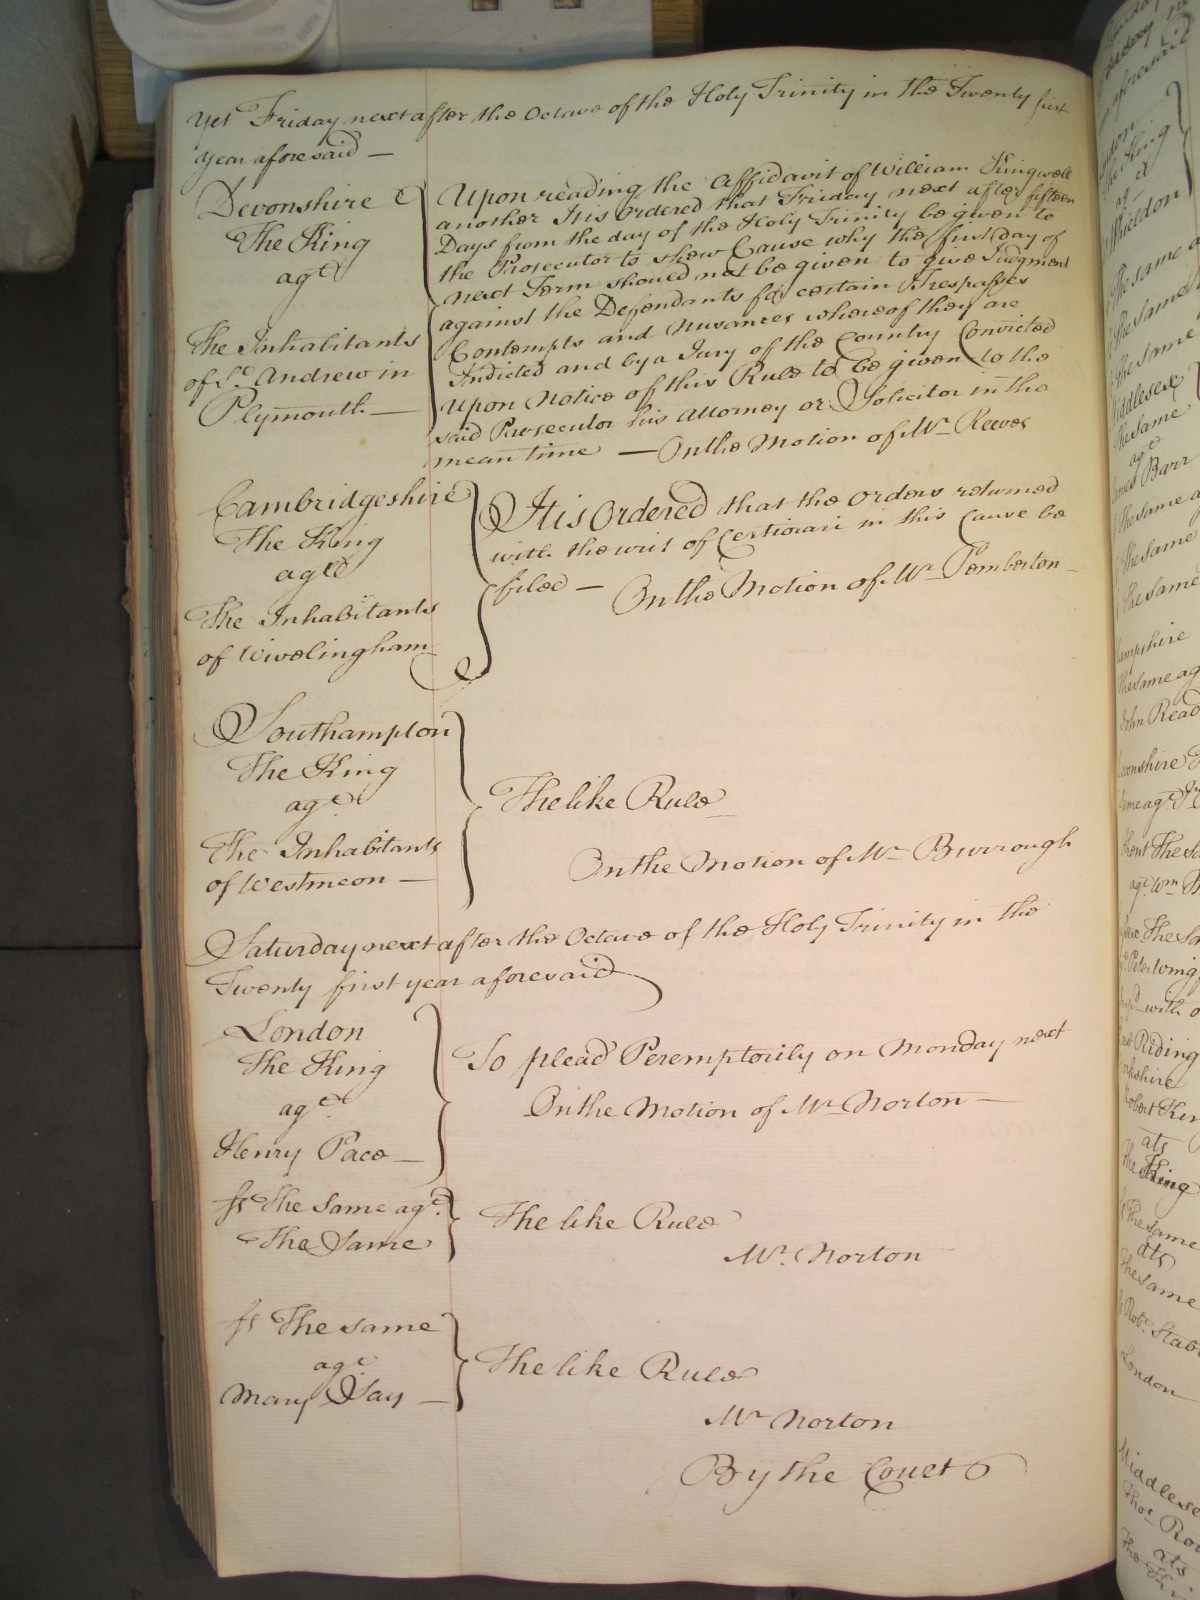 Yet Friday next after the Octave of the Holy Trinity in the Twenty first
year aforesaid —
Devonshire
The King
agt
The Inhabitants
of St Andrew in
Plymouth —
Upon reading the Affidavit of William Kingwell
another It is Ordered that Friday next after fifteen
Days from the day of the Holy Trinity be given to
the Prosecutor to shew Cause why the first day of
next Term should not be given to give Judgment
against the Defendants for certain Trespasses
Contempts and Nusances whereof they are
Indicted and by a Jury of the Country Convicted
Upon Notice of this Rule to be given to the
said Prosecutor his Attorney or Solicitor in the
mean time — On the Motion of Mr Reeves
Cambridgeshire
The King
agt
The Inhabitants
of Wivelingham
It is Ordered that the Orders returned
with the writ of Certiorari in this Cause be
filed — On the Motion of Mr Pemberton —
Southampton
The King
agt
The Inhabitants
of Westmeon —
The like Rule
On the Motion of Mr Burrough
Saturday next after the Octave of the Holy Trinity in the
Twenty first year aforesaid
London
The King
agt
Henry Pace —
To plead Peremptorily on Monday next
On the Motion of Mr Norton —
fs The Same agt
The Same
The like Rule
Mr Norton
fs The same
agt
Mary Say —
The like Rule
Mr Norton
By the Court
The King
agt
Shieldon
The same
The same
The same
Middlesex
The same
agt
James Barr
The same
The same
The same
Hampshire
The same ag
John Read
Devonshire
same agt
Kent The Sa
agt Wm
The Sa
with
East Riding
Yorkshire
Robert Ken
ats
The King
The same
ats
The same
Robt Stab
London
Middlese
Thos Ro
ats